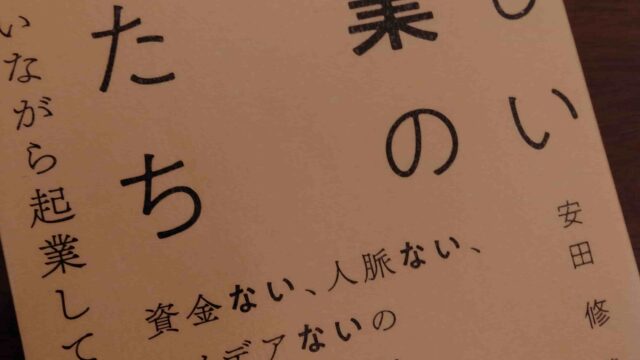 い
業の
たち
安田 修
いながら起業して
資金ない、人脈ない、
デアないの